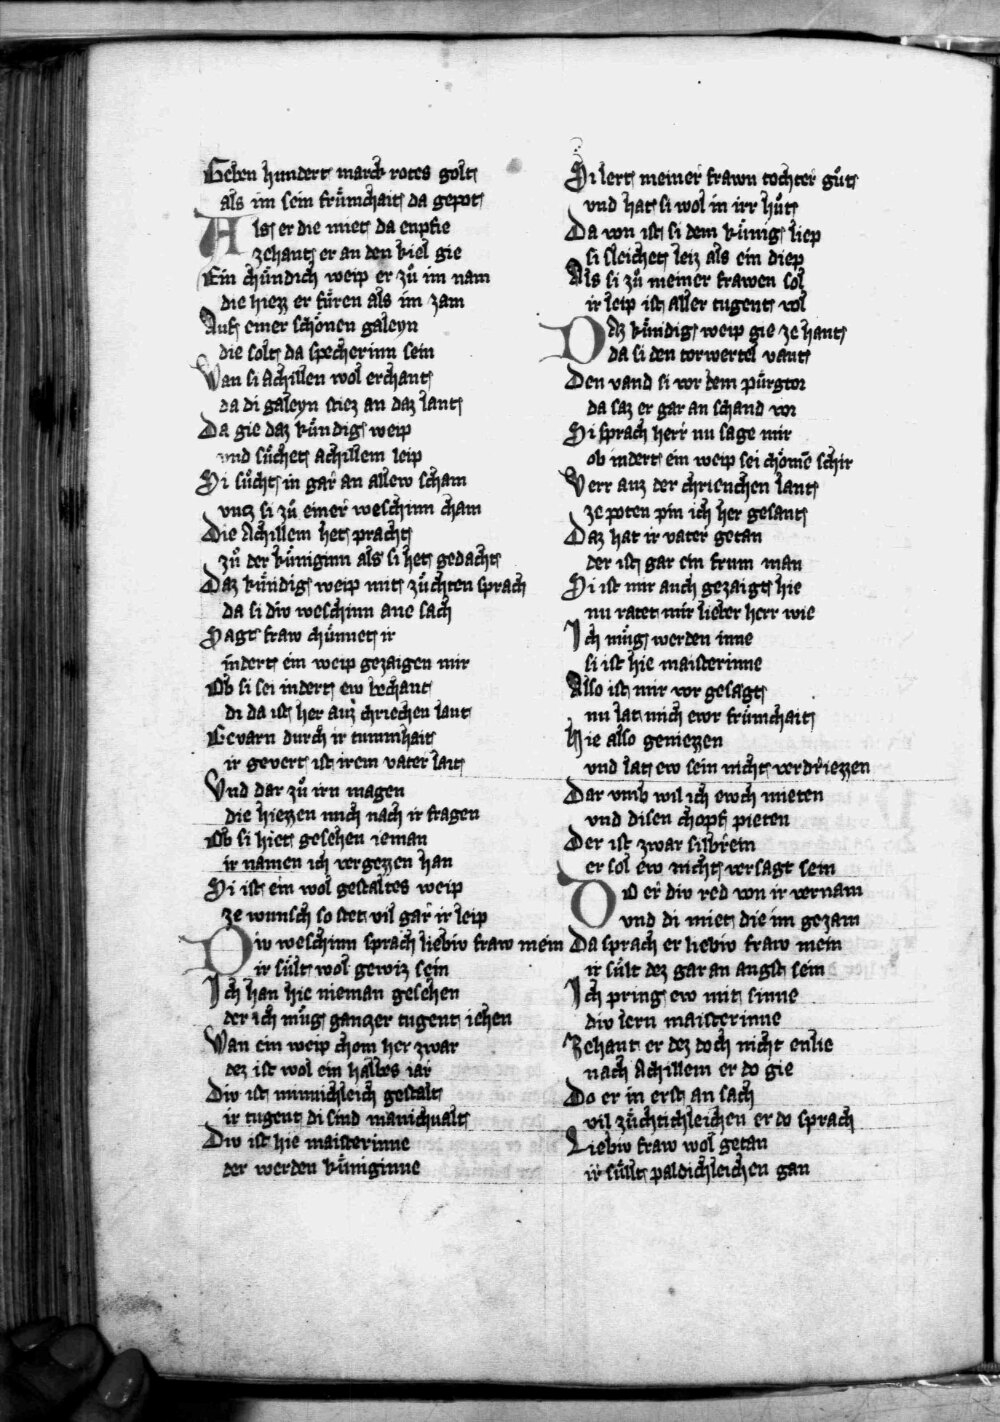 Geben hundert marck rotes golt
als im sein frümchait da gepot
Als er die miet da enpfie
zehant er an den kiel gie
Ein chündich weip er zů im nam
die hiezz er füren als im zam
Auf einer schönen galeyn
die solt da specherinn sein
Wan si Achillen wol erchant
da di galeyn stiez an daz lant
Da gie daz kündig weip
vnd sůchet Achillem leip
Si sůcht in gar an allew scham
vntz si zů einer weschinn cham
Die Achillem het pracht
zů der küniginn als si het gedacht
Daz kündig weip mit züchten sprach
da si div weschinn ane sach
Sagt fraw chünnet ir
indert ein weip gezaigen mir
Ob si sei indert ew bechant
di da ist her auz chriechen lant
Gevarn durch ir tummhait
ir gevert ist irem vater lait
Vnd dar zů irn magen
die hiezzen mich nach ir fragen
Ob si hiet gesehen ieman
ir namen ich vergezzen han
Si ist ein wol gestaltes weip
ze wunsch so stet vil gar ir leip
Div weschinn sprach liebiv fraw mein
ir sült wol gewiz sein
Ich han hie nieman gesehen
der ich müg gantzer tugent iehen
Wan ein weip chom her zwar
dez ist wol ein halbes iar
Div ist minnichleich gestalt
ir tugent di sind manichualt
Div ist hie maisterinne
der werden küniginne
Si lert meiner frawn tochter gůt
vnd hat si wol in irr hůt
Da von ist si dem künig liep
si sleichet leiz als ein diep
Als si zů meiner frawen sol
ir leip ist aller tugent vol
Daz kündig weip gie ze hant
da si den torwertel vant
Den vand si vor dem pürgtor
da saz er gar an schand vor
Si sprach herr nu sage mir
ob indert ein weip sei chöme schir
Verr auz der chriechen lant
ze poten pin ich her gesant
Daz hat ir vater getan
der ist gar ein frum man
Si ist mir auch gezaigt hie
nu ratet mir lieber herr wie
Ich müg werden inne
si ist hie maisterinne
Also ist mir vor gesagt
nu lat mich ewr frümchait
Hie also geniezzen
vnd lat ew sein nicht verdriezzen
Dar vmb wil ich ewch mieten
vnd disen chopf pieten
Der ist zwar silbrein
er sol ew nicht versagt sein
Do er div red von ir vernam
vnd di miet die im gezam
Da sprach er liebiv fraw mein
ir sült dez gar an angst sein
Ich pring ew mit sinne
div lern maisterinne
Zehant er dez doch nicht enlie
nach Achillem er do gie
Do er in erst an sach
vil züchtichleichen er do sprach
Liebiv fraw wol getan
ir sült paldichleichen gan